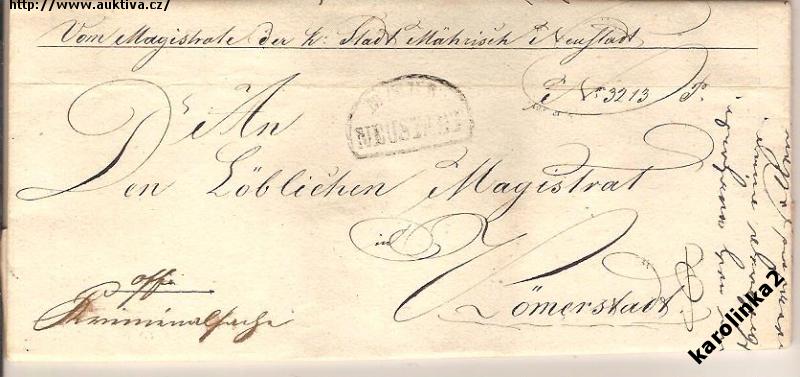 http://www.auktiva.cz/
Vom Magistrate der k: Stadt Mährisch Neustadt
No 3213 P.
An
NEUSTADT
Den Löblichen Magistrat
in
Römerstadt.
offo
Kriminalsache
karolinka2